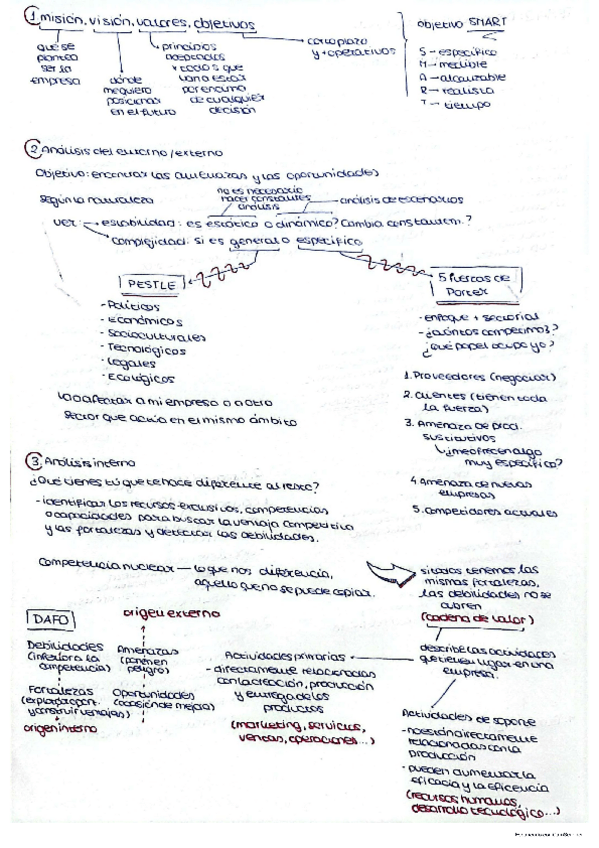 1. misión, visión, valores, objetivos
que se
plantea
ser la
empresa
dónde
me quiero
posicionar
en el futuro
principios
aceptados
x todos que
van a estar
por encima
de cualquier
decisión
corto plazo
y + operativos
objetivo SMART
S - específico
M - medible
A - alcanzable
R - realista
T - tiempo
2. Análisis del entorno / externo
Objetivo: encontrar las amenazas y las oportunidades
según la naturaleza
no es necesario
hacer constantes
análisis
análisis de escenarios
ver: estabilidad: es estático o dinámico? Cambia constantem.?
complejidad: si es general o específico
PESTLE
- Políticos
- Económicos
- Socioculturales
- Tecnológicos
- Legales
- Ecológicos
va a afectar a mi empresa o a otro
sector que actúa en el mismo ámbito
5 fuerzas de
Porter
- enfoque + sectorial
- ¿cuántos competimos?
¿qué papel ocupo yo?
1. Proveedores (negociar)
2. Clientes (tienen toda
la fuerza)
3. Amenaza de prod.
sustitutivos
¿me ofrecen algo
muy específico?
4. Amenaza de nuevas
empresas
5. Competidores actuales
3. Análisis interno
¿Qué tienes tú que te hace diferente al resto?
- identificar los recursos exclusivos, competencias
o capacidades para buscar la ventaja competitiva
y las fortalezas y detectar las debilidades.
Competencia nuclear — lo que nos diferencia,
aquello que no se puede copiar.
si todos tenemos las
mismas fortalezas,
las debilidades no se
cubren
(cadena de valor)
describe las actividades
que tienen lugar en una
empresa.
DAFO
origen externo
Debilidades
(inferior a la
competencia)
Amenazas
(ponen en
peligro)
Fortalezas
(explotar oport.
y construir ventajas)
Oportunidades
(ocasión de mejora)
origen interno
Actividades primarias
- directamente relacionadas
con la creación, producción
y entrega de los
productos
(marketing, servicios,
ventas, operaciones...)
Actividades de soporte
- no están directamente
relacionadas con la
producción
- pueden aumentar la
eficacia y la eficiencia
(recursos humanos,
desarrollo tecnológico...)